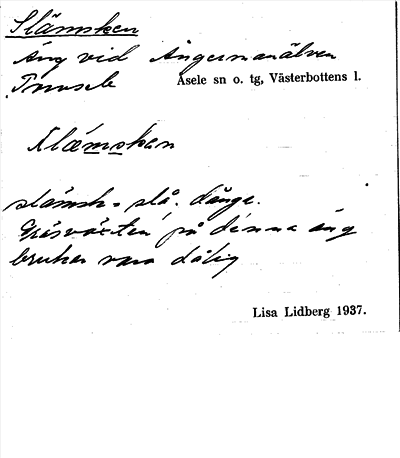 Slämsken
Äng vid Ångermanälven
Åsele sn o. tg, Västerbottens l.
slämsk = slå, dänga.
Gräsväxten på denna äng
bruka vara dålig
Lisa Lidberg 1937.